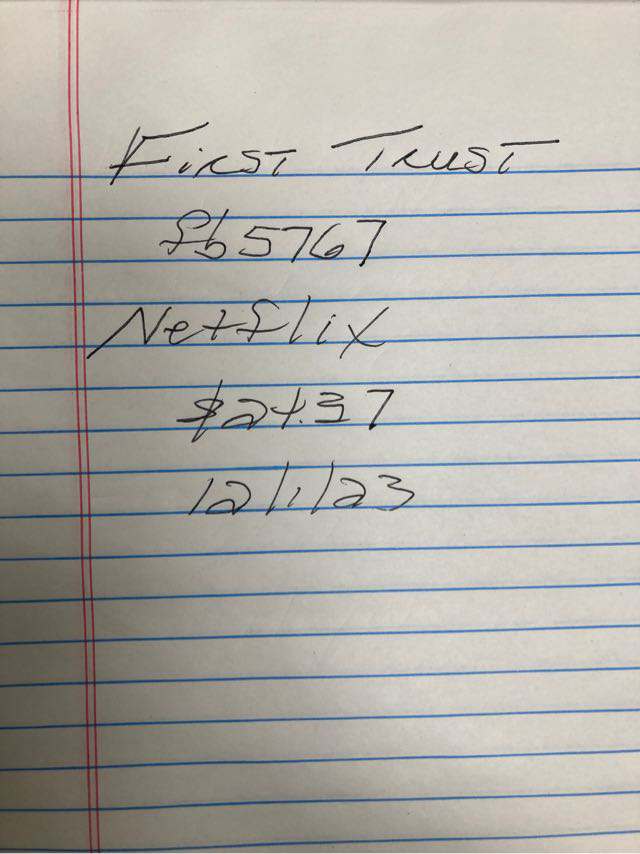 First Trust
fb5767
Netflix
$24.37
12/1/23